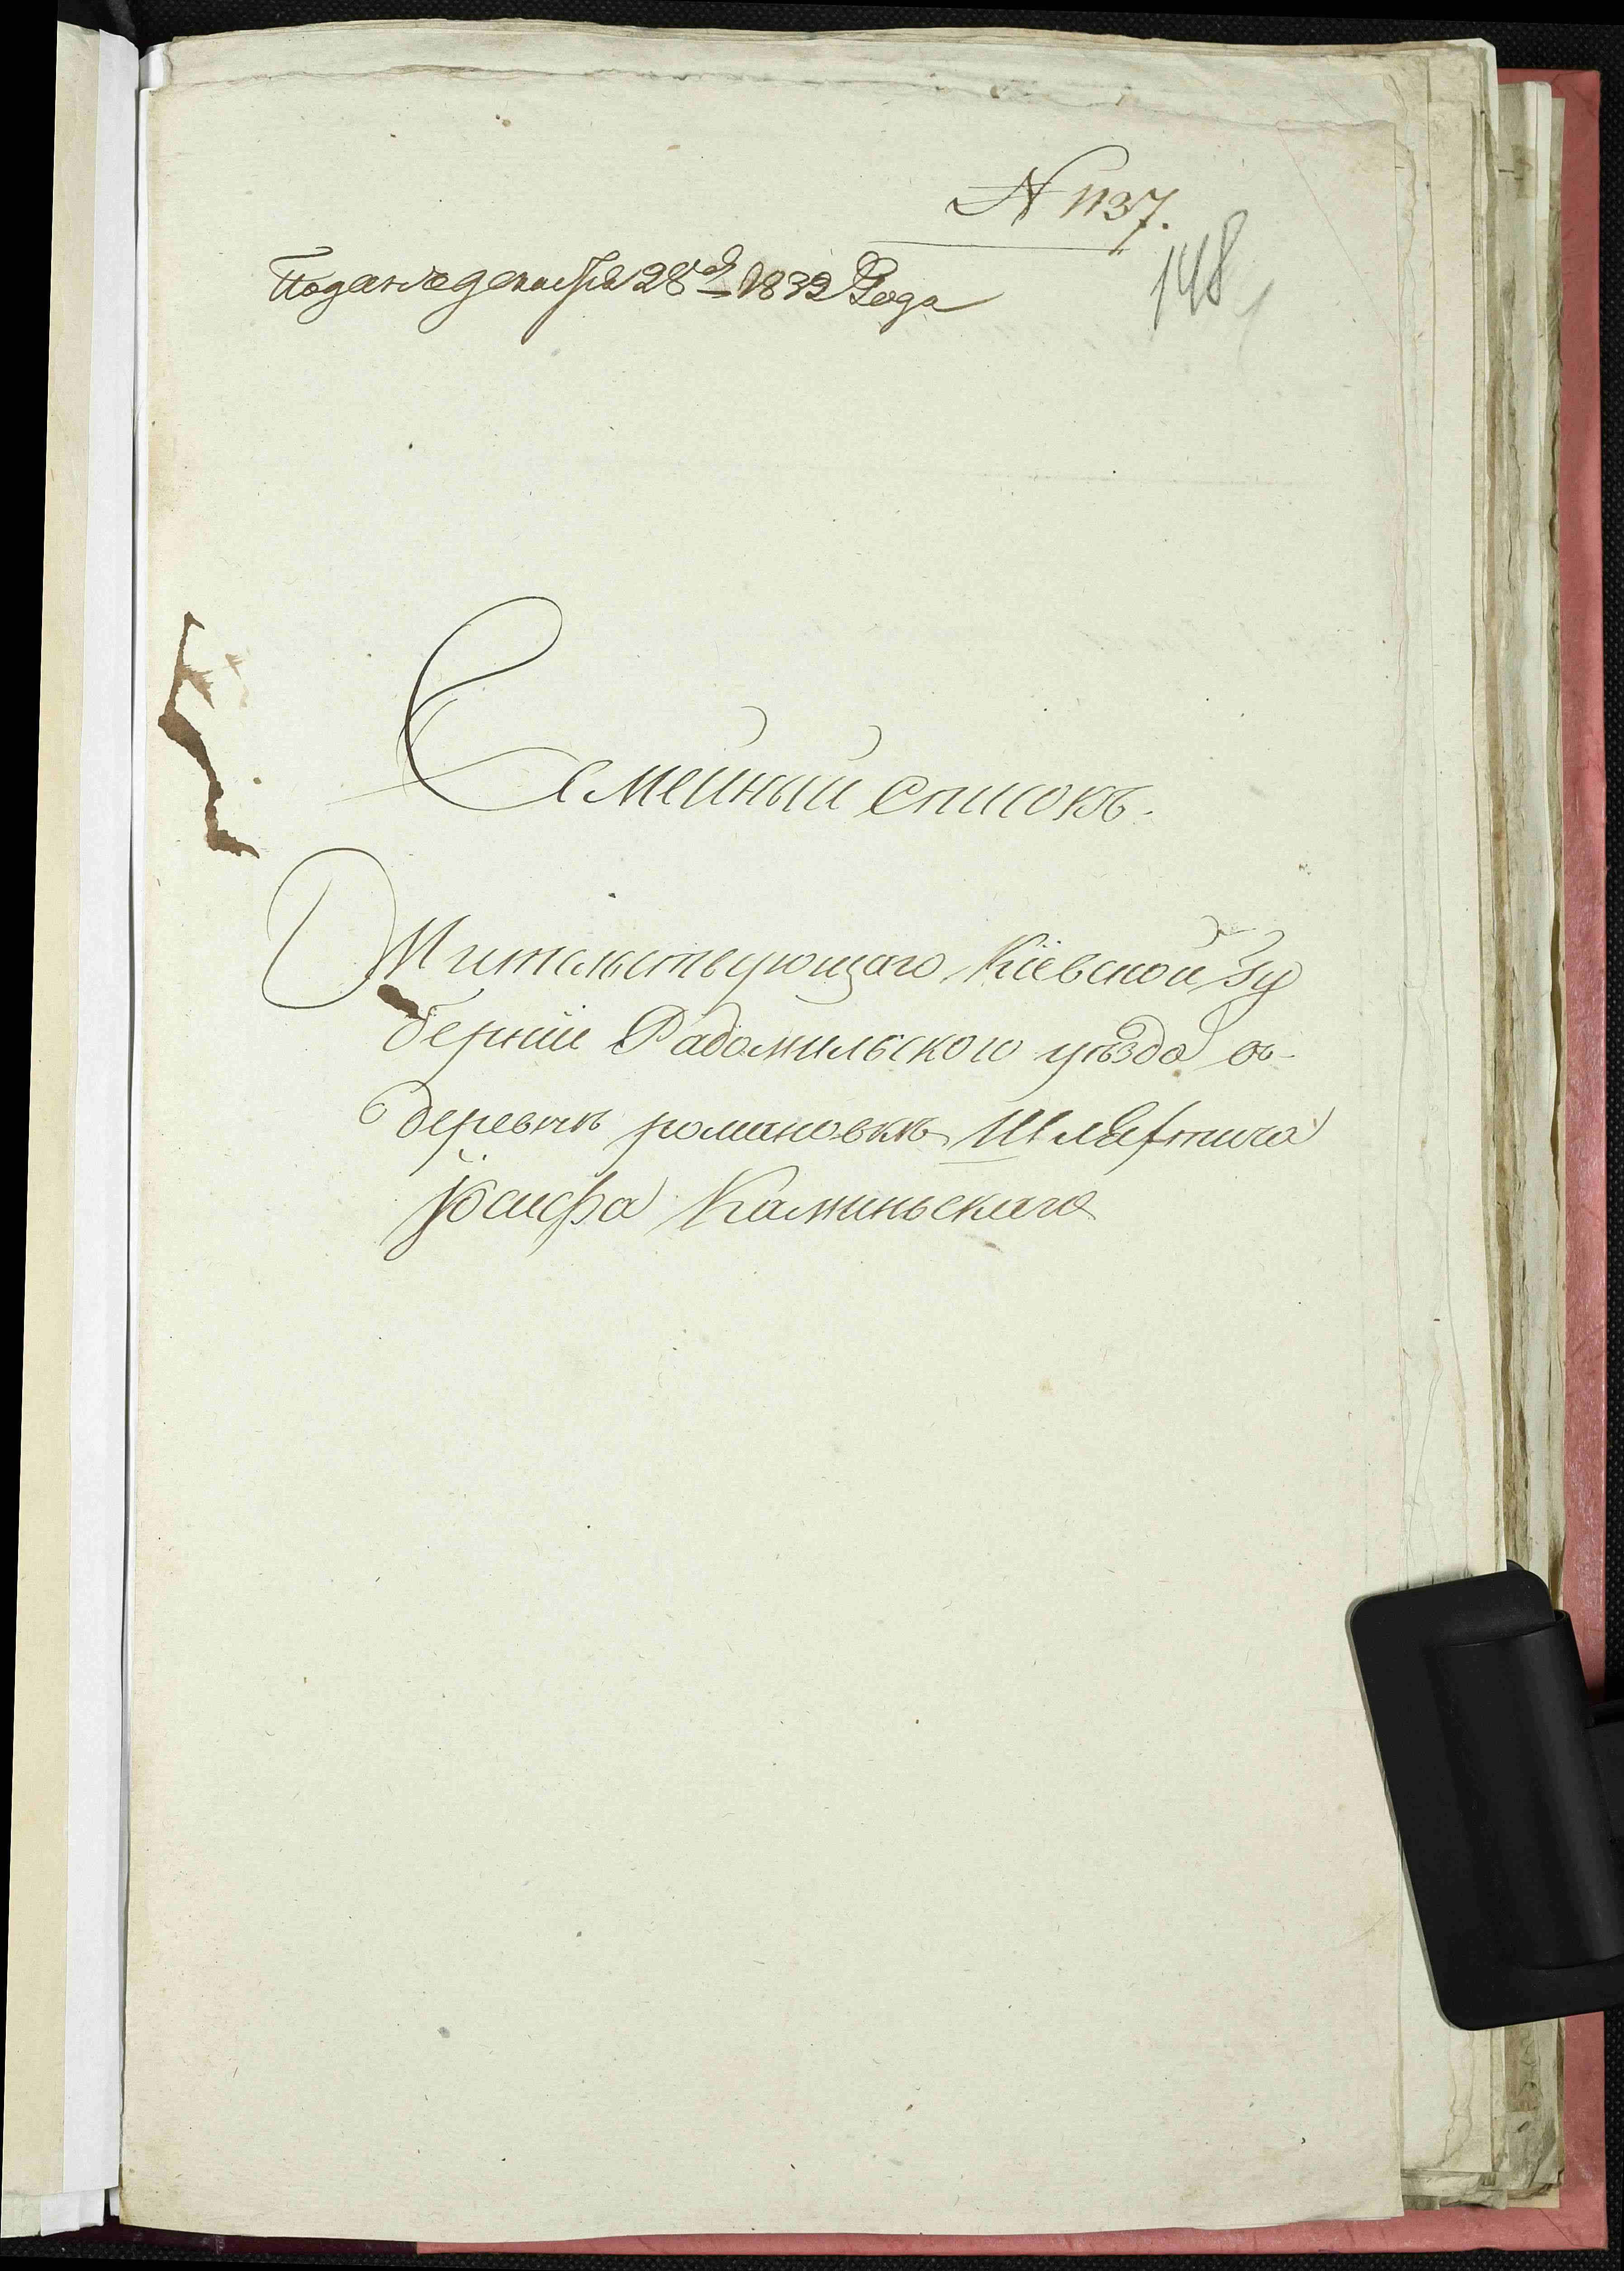 N 1137.
148
Подана декабря 28 д 1832 Года
Семейный списокъ.
Жительствующаго Кіевской гу
берніи Радомильского уѣзда въ
деревнѣ романовкѣ Шляхтича
Іосифа Каминьского